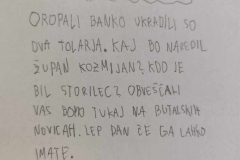 OROPALI BANKO UKRADILI SO
DVA TOLARJA. KAJ BO NAREDIL
ŽUPAN KOZMIJAN? KDO JE
BIL STORILEC? OBVEŠČALI
VAS BOMO TUKAJ NA BUTALSKIH
NOVICAH. LEP DAN ČE GA LAHKO
IMATE.